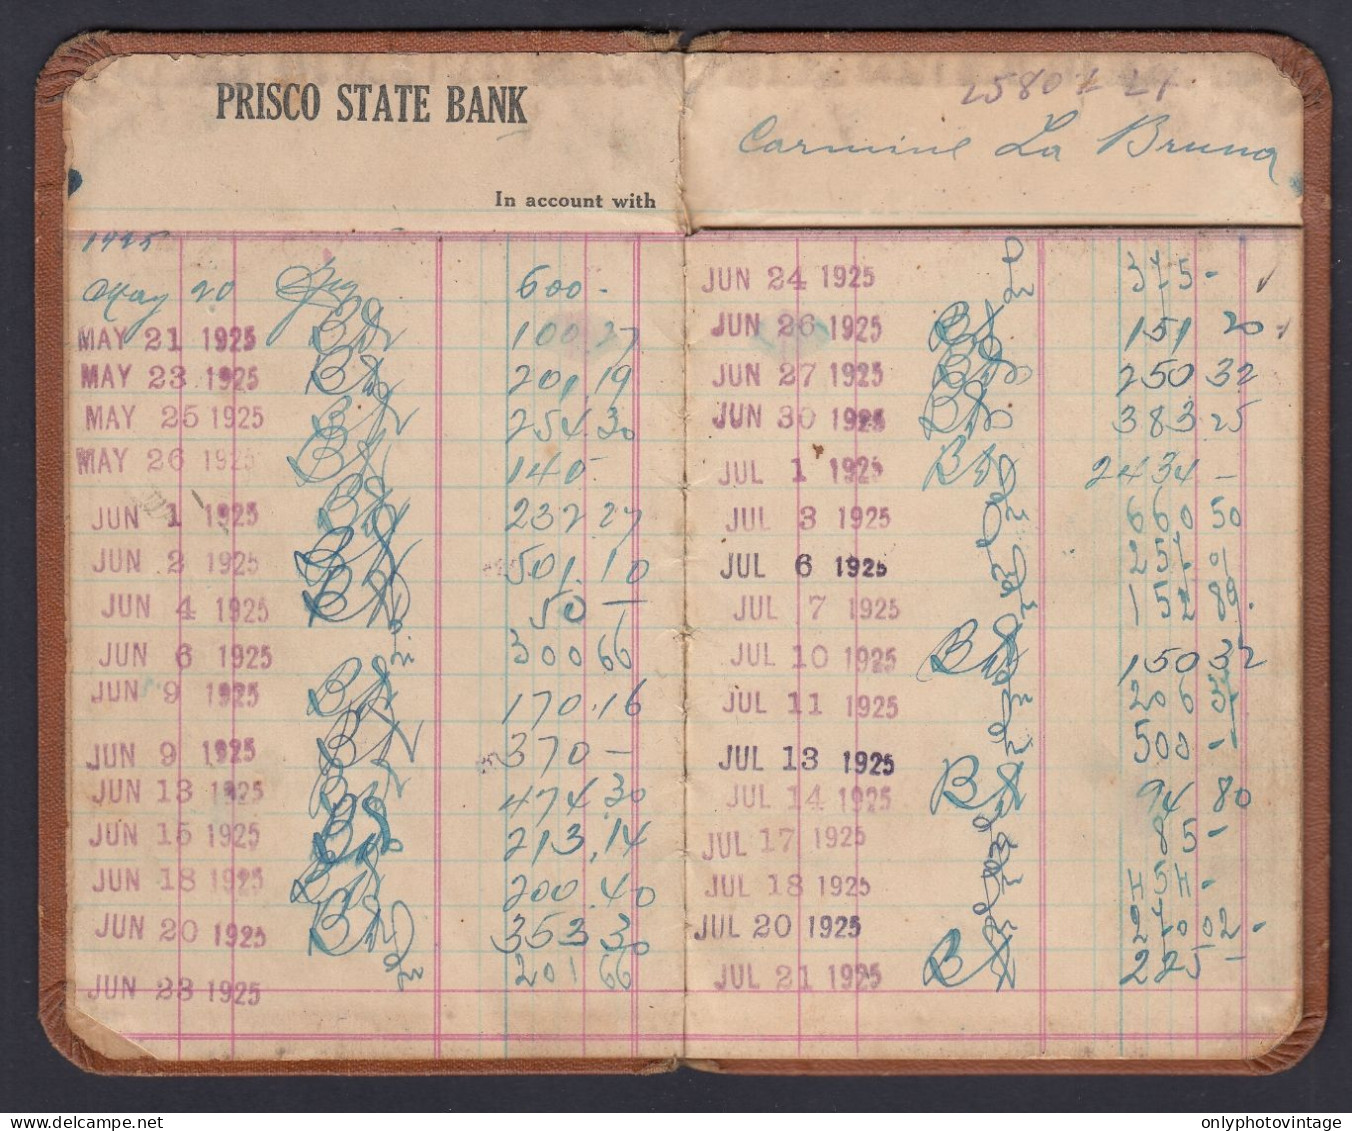 PRISCO STATE BANK
In account with
1925
May 20 600.-
MAY 21 1925 100.27
MAY 23 1925 201.19
MAY 25 1925 254.30
MAY 26 1925 140-
JUN 1 1925 232.27
JUN 2 1925 501.10
JUN 4 1925 50 -
JUN 6 1925 300 66
JUN 9 1925 170.16
JUN 9 1925 370 -
JUN 13 1925 474.30
JUN 15 1925 213.14
JUN 18 1925 200.40
JUN 20 1925 353.30
JUN 23 1925 201 66
Carmine La Bruna
JUN 24 1925 375 -
JUN 26 1925 151 20
JUN 27 1925 250 32
JUN 30 1925 383.25
JUL 1 1925 2434 -
JUL 3 1925 660 50
JUL 6 1925
JUL 7 1925 152 89.
JUL 10 1925 150 32
JUL 11 1925 206
JUL 13 1925 500 -
JUL 14 1925 94 80
JUL 17 1925 85 -
JUL 18 1925 454 -
JUL 20 1925 02 -
JUL 21 1925 225 -
onlyphotovintage